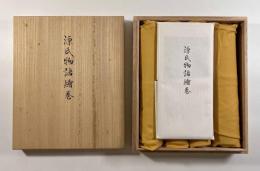 源氏物語繪巻
源氏物語繪巻